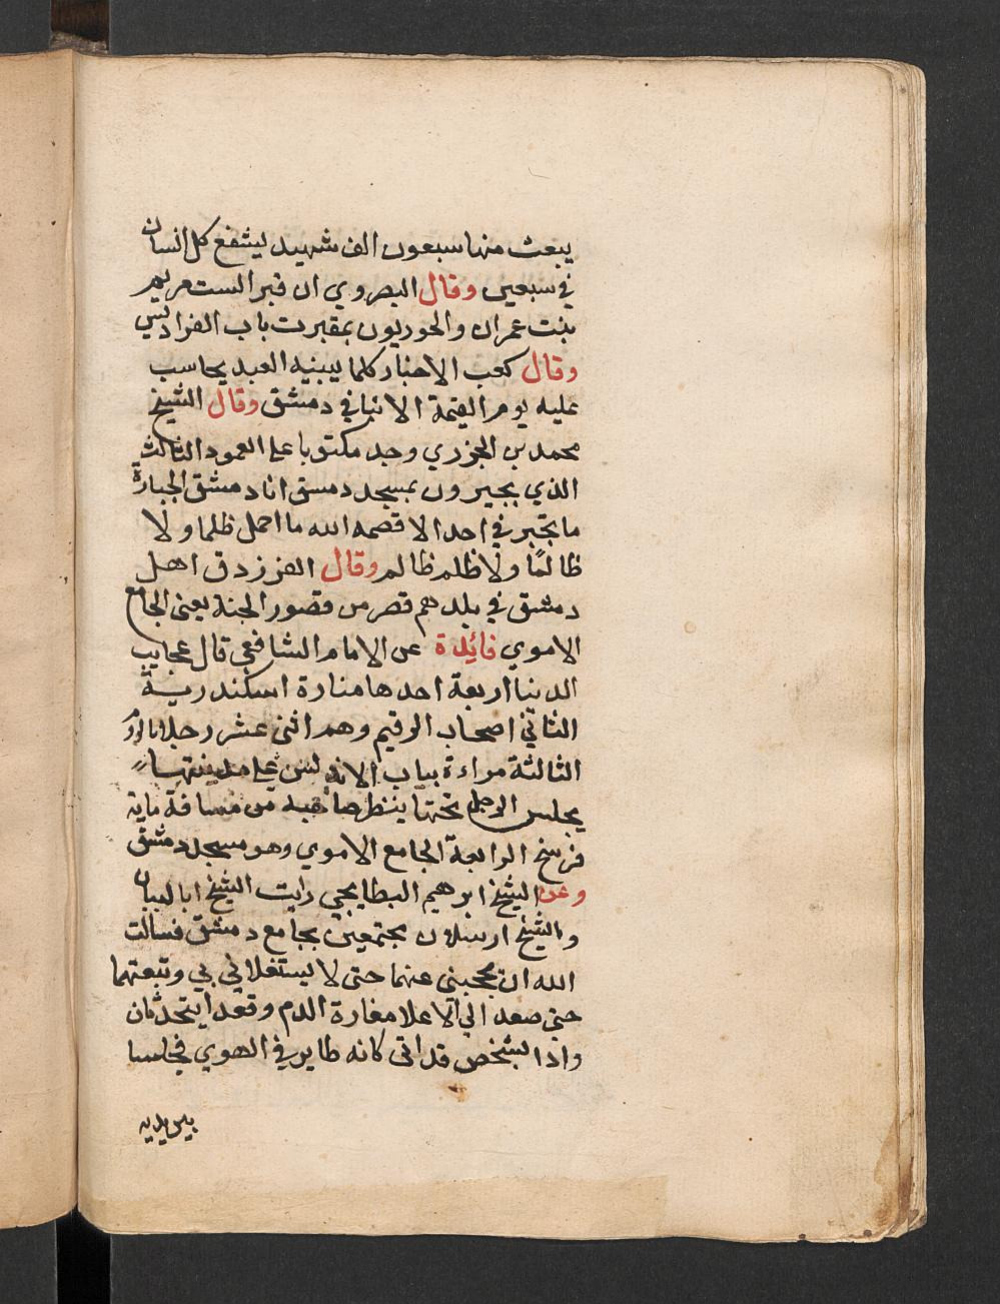 يبعث منها سبعون الف شهيد ليشفع كل انسان
في سبعين وقال البصروي ان قبر الست مريم
بنت عمران والحوريون بمقبرت باب الفراديس
وقال كعب الاحبار كلما يبنيه العبد يحاسب
عليه يوم القيمة الا بنا في دمشق وقال الشيخ
محمد بن الجزري وجد مكتوبا على العمود الثالث
الذي بجيرون بمسجد دمشق انا دمشق الجبارة
ما تجبر في احد الا قصمه الله ما احمل ظلما ولا
ظالمًا ولا ظلم ظالم وقال الفرزدق اهل
دمشق في بلدهم قصر من قصور الجنة يعنى الجامع
الاموي فائدة عن الامام الشافعي قال عجايب
الدنيا اربعة احدها منارة اسكندرية
الثاني اصحاب الرقيم وهم اثنى عشر رجلا
الثالثة مراءة بباب الاندلس على مدينتها
يجلس الرجل تحتها ينظر صاحبه من مسافة ماية
فرسخ الرابعة الجامع الاموي وهو مسجد دمشق
وعن الشيخ ابرهيم البطايحي رايت الشيخ ابا البيان
والشيخ ارسلان مجتمعين بجامع دمشق فسالت
الله ان يحجبنى عنهما حتى لا يستغلاني بي وتبعتهما
حتى صعد الي اعلا مغارة الدم وقعدا يتحدثان
واذا بشخص قد اتى كانه طاير في الهوي فجلسا
بين يديه